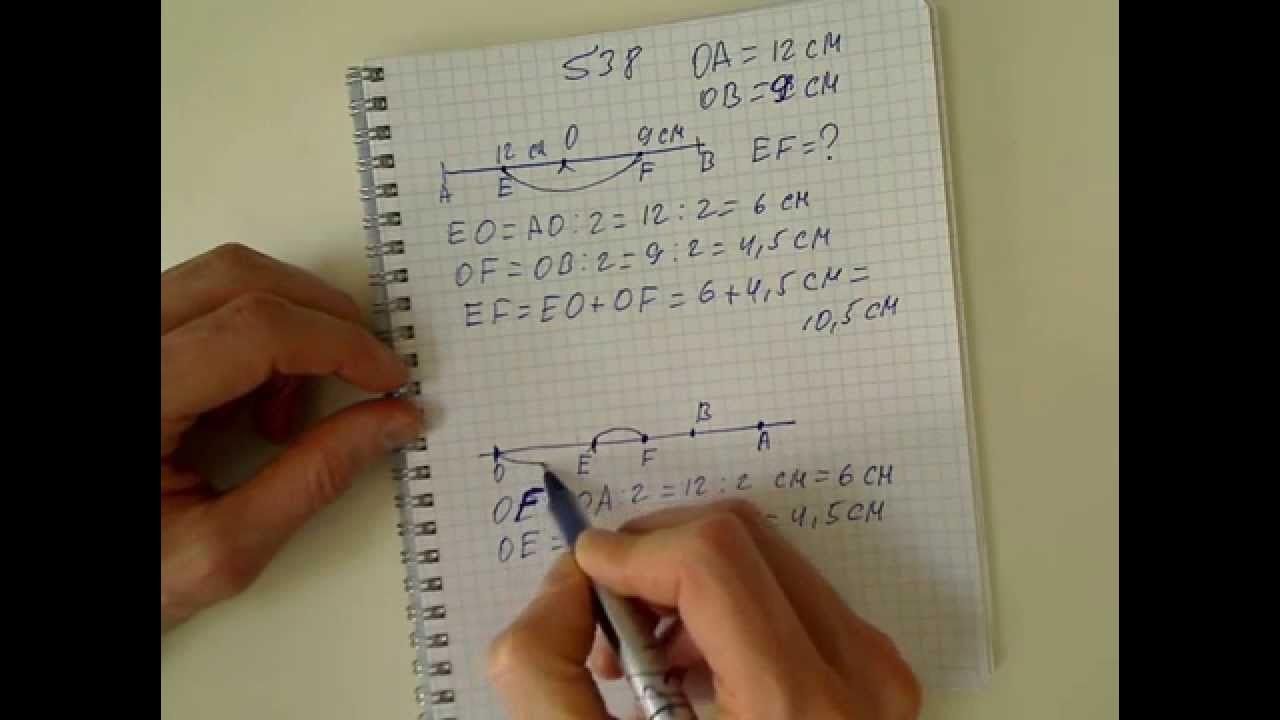 538
OA = 12 см
OB = 9 см
12 см O 9 см
A E F B
EF = ?
EO = AO : 2 = 12 : 2 = 6 см
OF = OB : 2 = 9 : 2 = 4,5 см
EF = EO + OF = 6 + 4,5 см =
10,5 см
B
O E F A
OF OA : 2 = 12 : 2 см = 6 см
OE = = 4,5 см